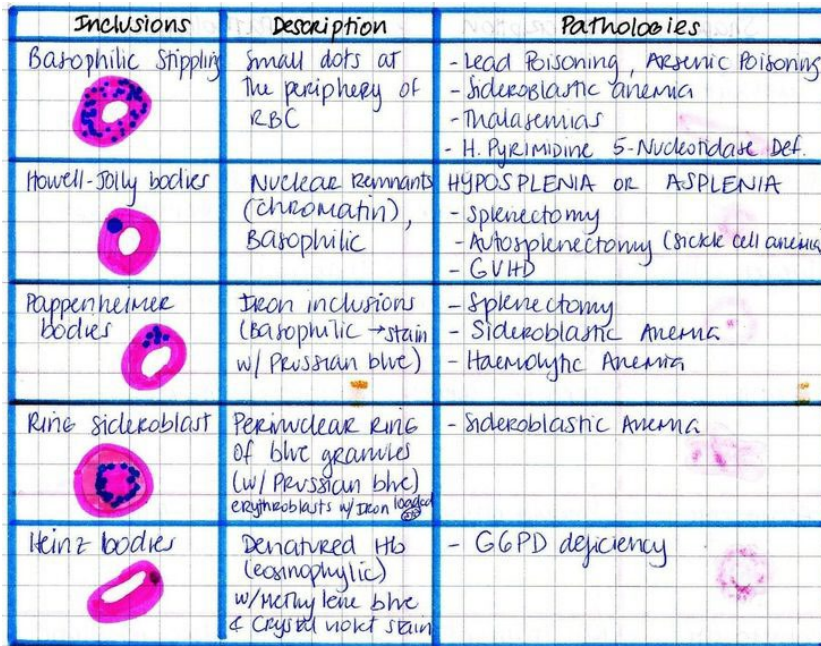 Inclusions
Description
Pathologies
Basophilic Stippling
Small dots at
the periphery of
RBC
- Lead Poisoning, Arsenic Poisoning
- Sideroblastic anemia
- Thalasemias
- H. Pyrimidine 5-Nucleotidase Def.
Howell-Jolly bodies
Nuclear Remnants
(chromatin),
Basophilic
HYPOSPLENIA OR ASPLENIA
- Splenectomy
- Autosplenectomy (sickle cell anemia
- GVHD
Pappenheimer
bodies
Iron inclusions
(Basophilic → stain
w/ Prussian blue)
- Splenectomy
- Sideroblastic Anemia
- Haemolytic Anemia
Ring Sideroblast
Perinuclear Ring
of blue granules
(w/ Prussian blue)
erythroblasts w/ Iron loaded
- Sideroblastic Anemia
Heinz bodies
Denatured Hb
(eosinophylic)
w/ Methylene blue
& Crystal violet stain
- G6PD deficiency